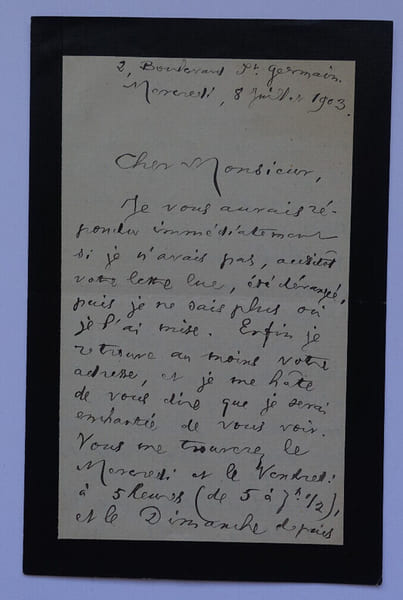 2, Boulevard St. Germain.
Mercredi, 8 juillet 1903.
Cher Monsieur,
Je vous aurais ré-
pondu immédiatement
si je n'avais pas, aussitôt
votre lettre lue, été dérangé,
puis je ne sais plus où
je l'ai mise. Enfin je
retrouve au moins votre
adresse, et je me hâte
de vous dire que je serai
enchantée de vous voir.
Vous me trouverez le
Mercredi et le Vendredi
à 5 heures (de 5 à 7h 1/2),
et le Dimanche depuis